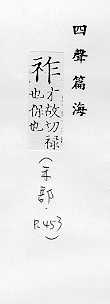 四聲篇海
祚才故切祿
也保也
(示部.
P.453)